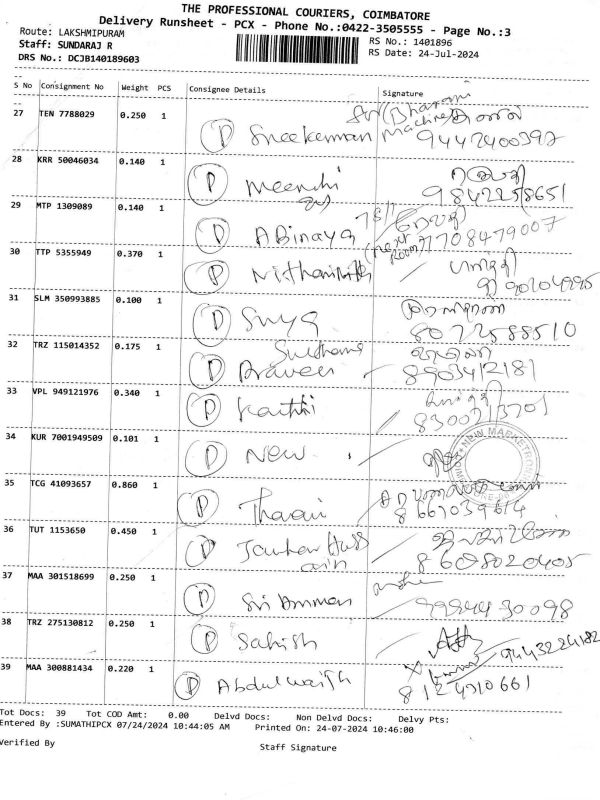 THE PROFESSIONAL COURIERS, COIMBATORE
Delivery Runsheet - PCX - Phone No.:0422-3505555 - Page No.:3
Route: LAKSHMIPURAM
RS No.: 1401896
Staff: SUNDARAJ R
RS Date: 24-Jul-2024
DRS No.: DCJB140189603
S No Consignment No Weight PCS Consignee Details Signature
27 TEN 7788029 0.250 1 D Sreekumar 9442400397
28 KRR 50046034 0.140 1 D Meenchi 9842258651
29 MTP 1309089 0.140 1 D Abinaya (next room) 7708479007
30 TTP 5355949 0.370 1 D
31 SLM 350993885 0.100 1 D Surya 8072588510
32 TRZ 115014352 0.175 1 D Praveen 8903412181
33 VPL 949121976 0.340 1 D Karthi 8300713701
34 KUR 7001949509 0.101 1 D New
NEW MARKET
35 TCG 41093657 0.860 1 D 8667039614
36 TUT 1153650 0.450 1 D 8608020405
37 MAA 301518699 0.250 1 D Sri Amman 9994430098
38 TRZ 275130812 0.250 1 D Sakish 9443224182
39 MAA 300881434 0.220 1 D 8124910661
Tot Docs: 39 Tot COD Amt: 0.00 Delvd Docs: Non Delvd Docs: Delvy Pts:
Entered By :SUMATHIPCX 07/24/2024 10:44:05 AM Printed On: 24-07-2024 10:46:00
Verified By Staff Signature